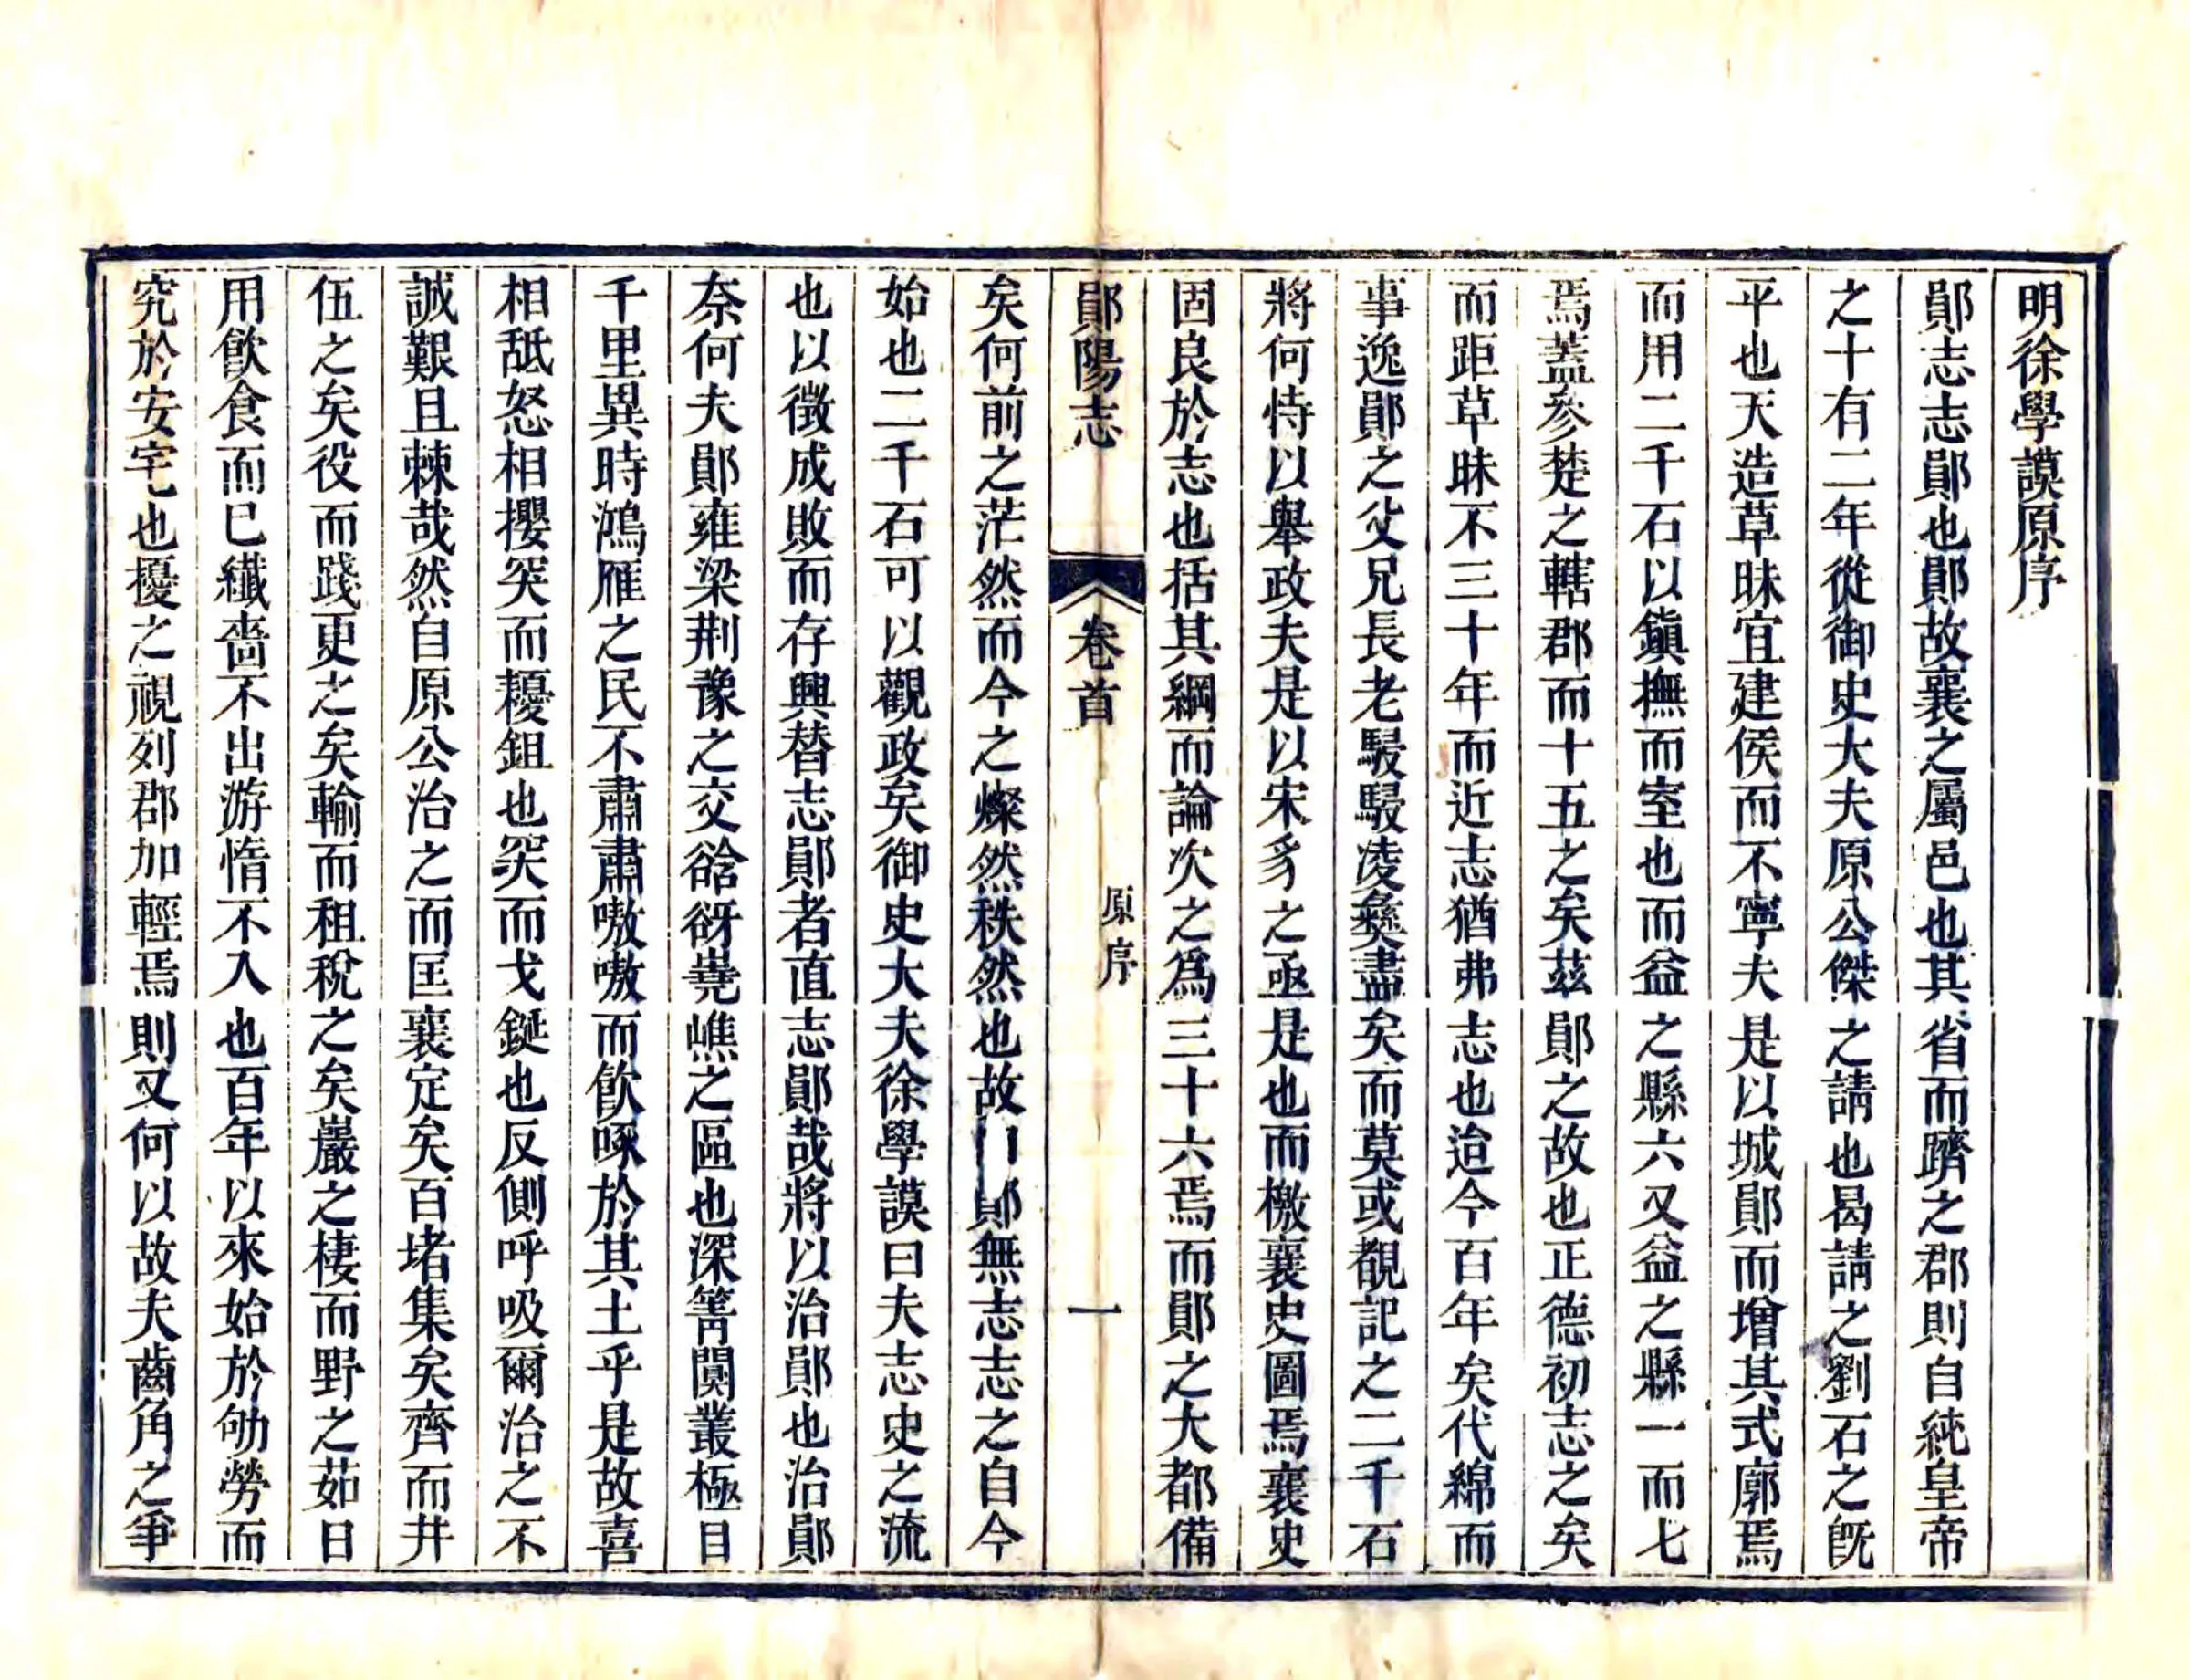 明徐學謨原序
鄖志志鄖也鄖故襄之屬邑也其省而躋之郡則自純皇帝
之十有二年從御史大夫原公傑之請也曷請之劉石之旣
平也天造草昧宜建侯而不寧夫是以城鄖而增其式廓焉
而用二千石以鎭撫而室也而益之縣六又益之縣一而七
焉蓋參楚之轄郡而十五之矣茲鄖之故也正德初志之矣
而距草昧不三十年而近志猶弗志也迨今百年矣代綿而
事逸鄖之父兄長老駸駸凌彝盡矣而莫或覩記之二千石
將何恃以舉政夫是以宋豸之亟是也而檄襄史圖焉襄史
固良於志也括其綱而論次之爲三十六焉而鄖之大都備
鄖陽志
卷首
原序
一
矣何前之茫然而今之燦然秩然也故曰鄖無志志之自今
始也二千石可以觀政矣御史大夫徐學謨曰夫志史之流
也以徵成敗而存興替志鄖者直志鄖哉將以治鄖也治鄖
奈何夫鄖雍梁荆豫之交谽谺嶤嶕之區也深箐闃叢極目
千里異時鴻雁之民不肅肅嗷嗷而飮啄於其土乎是故喜
相舐怒相攖突而耰鉏也突而戈鋋也反側呼吸爾治之不
誠艱且棘哉然自原公治之而匡襄定矣百堵集矣齊而井
伍之矣役而踐更之矣輸而租稅之矣巖之棲而野之茹日
用飮食而巳纖嗇不出游惰不入也百年以來始於劬勞而
究於安宅也擾之視列郡加輕焉則又何以故夫齒角之爭